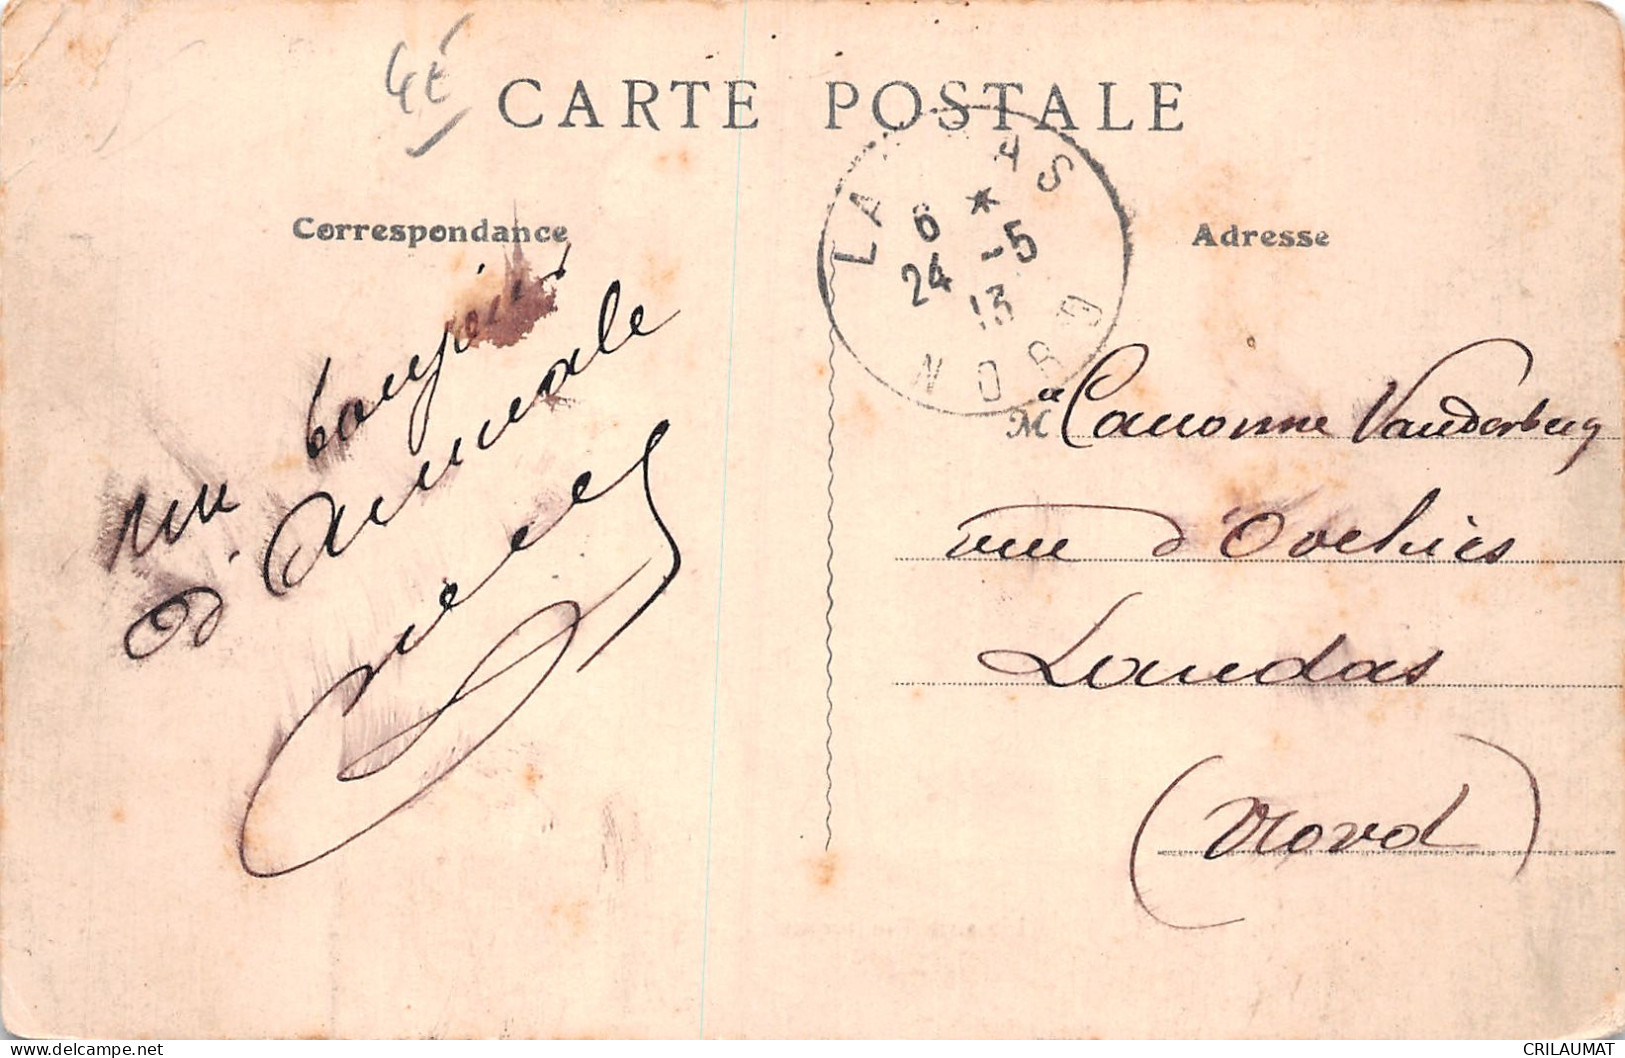 4E
CARTE POSTALE
Correspondance
Adresse
LA AS
6 *
24 -5
13
NORD
un bonjour
d'Aumale
M à Caronne Vanderberg
rue d'Orchies
Landas
(Nord)
CRILAUMAT